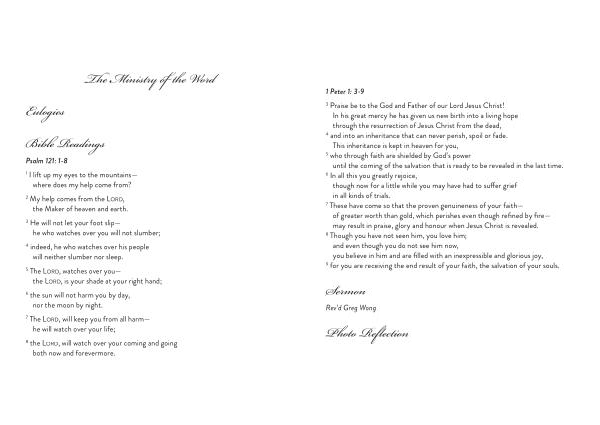 The Ministry of the Word
Eulogies
Bible Readings
Psalm 121: 1-8
1 I lift up my eyes to the mountains—
where does my help come from?
2 My help comes from the LORD,
the Maker of heaven and earth.
3 He will not let your foot slip—
he who watches over you will not slumber;
4 indeed, he who watches over his people
will neither slumber nor sleep.
5 The LORD, watches over you—
the LORD, is your shade at your right hand;
6 the sun will not harm you by day,
nor the moon by night.
7 The LORD, will keep you from all harm—
he will watch over your life;
8 the LORD, will watch over your coming and going
both now and forevermore.
1 Peter 1: 3-9
3 Praise be to the God and Father of our Lord Jesus Christ!
In his great mercy he has given us new birth into a living hope
through the resurrection of Jesus Christ from the dead,
4 and into an inheritance that can never perish, spoil or fade.
This inheritance is kept in heaven for you,
5 who through faith are shielded by God's power
until the coming of the salvation that is ready to be revealed in the last time.
6 In all this you greatly rejoice,
though now for a little while you may have had to suffer grief
in all kinds of trials.
7 These have come so that the proven genuineness of your faith—
of greater worth than gold, which perishes even though refined by fire—
may result in praise, glory and honour when Jesus Christ is revealed.
8 Though you have not seen him, you love him;
and even though you do not see him now,
you believe in him and are filled with an inexpressible and glorious joy,
9 for you are receiving the end result of your faith, the salvation of your souls.
Sermon
Rev'd Greg Wong
Photo Reflection